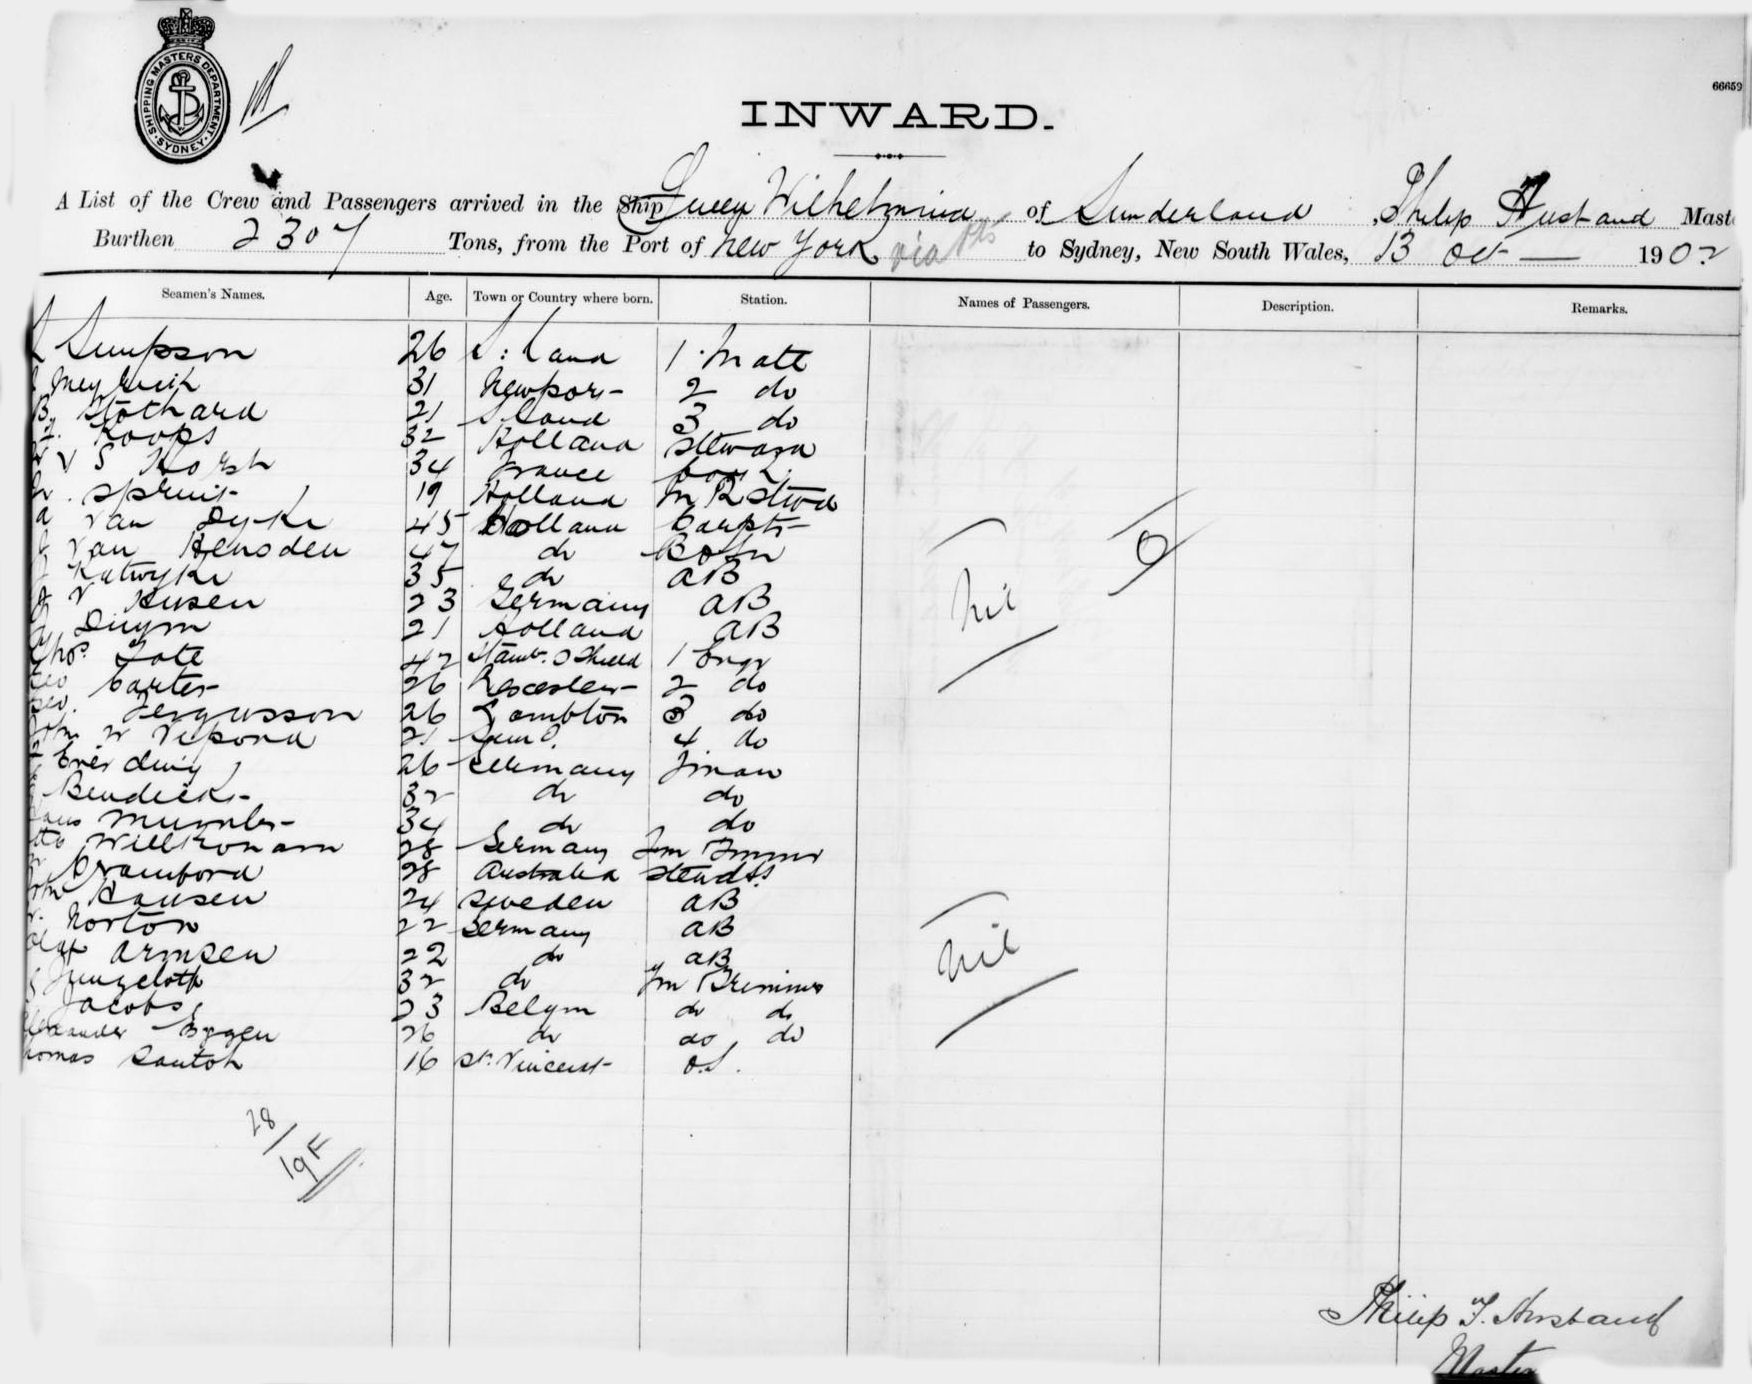 SHIPPING MASTERS DEPARTMENT
SYDNEY
66659
INWARD.
A List of the Crew and Passengers arrived in the Ship Queen Wilhelmina of Sunderland, Philip Husband Mast
Burthen 2307 Tons, from the Port of New York via Pts to Sydney, New South Wales, 13 Oct — 1902
Seamen's Names. Age. Town or Country where born. Station. Names of Passengers. Description. Remarks.
Simpson 26 S. Land 1 Mate
Meyrick 31 Newport 2 do
B Stothard 21 S. Land 3 do
Koops 32 Holland Steward
V S Horst 34 France Cook
Spruit 19 Holland M R Stwd
Van Dyke 45 Holland Carptr
Van Heusden 47 do Bosn
Katwyke 35 do AB
V Husen 23 Germany AB
Duym 21 Holland AB
nil
Thos. Tate 42 S Shield 1 Engr
Geo Carter 26 Leicester 2 do
Geo. Fergusson 26 Lambton 3 do
John W Vipond 21 4 do
Everding 26 Germany Fman
Bendicks 32 do do
34 do do
Otto Willkomann 28 Germany Fm Trimmr
Crawford 28 Australia Stewdss
John Hansen 24 Sweden AB
Norton 22 Germany AB
Olaf Armsen 22 do AB
nil
Jungeloth 32 do Fm Trimmer
Jacobs 23 Belgm do do
Alexander Eggen 26 do do do
Thomas Santoh 16 St. Vincent O.S.
28
19 F
Philip T. Husband
Master